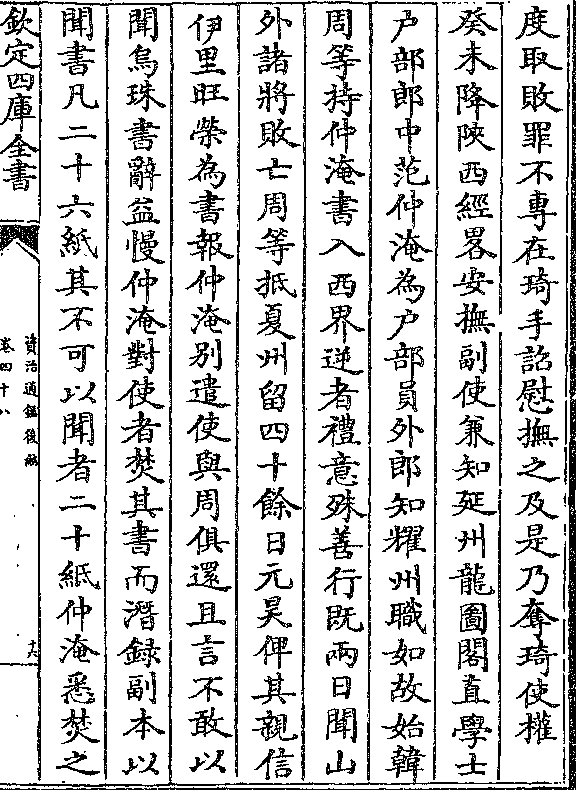 度取敗罪不專在琦手詔慰撫之及是乃奪琦使權
癸未降陝西經畧安撫副使兼知延州龍圖閣直學士
户部郎中范仲淹為户部員外郎知耀州職如故始韓
周等持仲淹書入西界逆者禮意殊善行既兩日聞山
外諸將敗亡周等抵夏州留四十餘日元昊俾其親信
伊里旺榮為書報仲淹别遣使與周俱還且言不敢以
聞烏珠書辭益慢仲淹對使者焚其書而潛録副本以
聞書凡二十六紙其不可以聞者二十紙仲淹悉焚之
欽定四庫全書
資治通鑑後編
卷四十八
十六